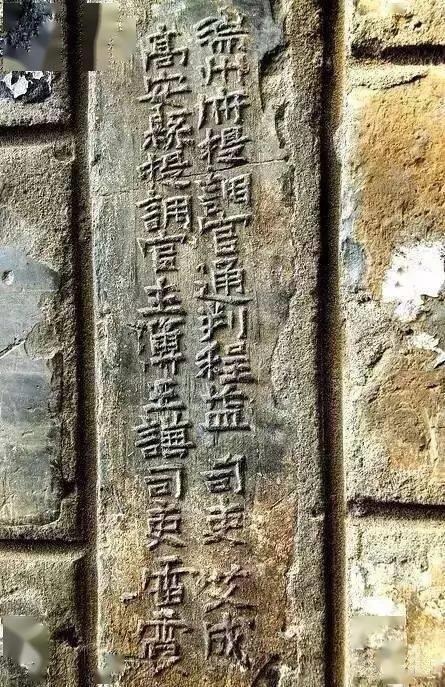 瑞州府提調官通判程益 司吏 艾成
高安縣提調官主簿王謙司吏 雷霄